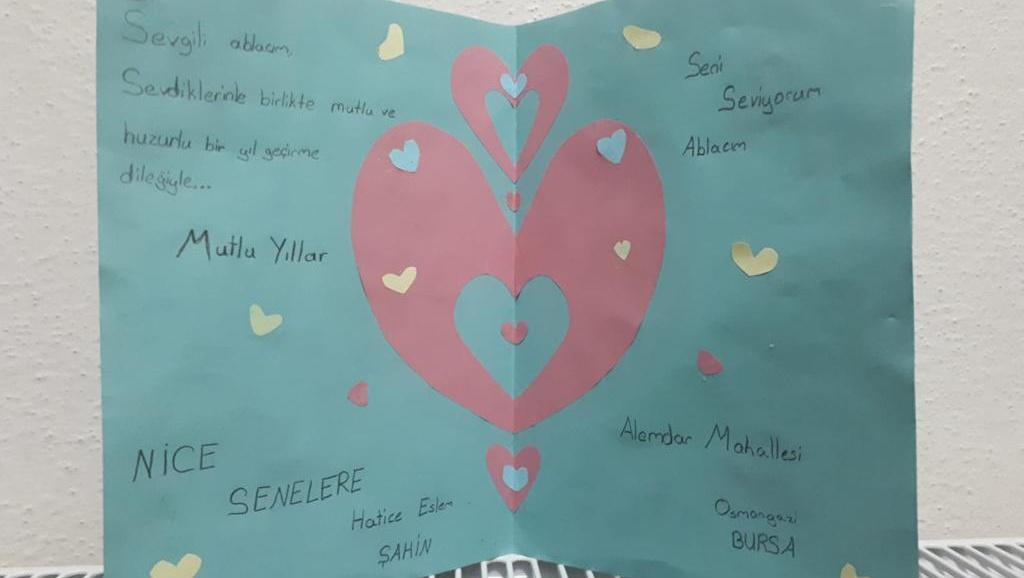 Sevgili ablacım,
Sevdiklerinle birlikte mutlu ve
huzurlu bir yıl geçirme
dileğiyle...
Mutlu Yıllar
NİCE
SENELERE
Hatice Eslem
ŞAHİN
Seni
Seviyorum
Ablacım
Alemdar Mahallesi
Osmangazi
BURSA